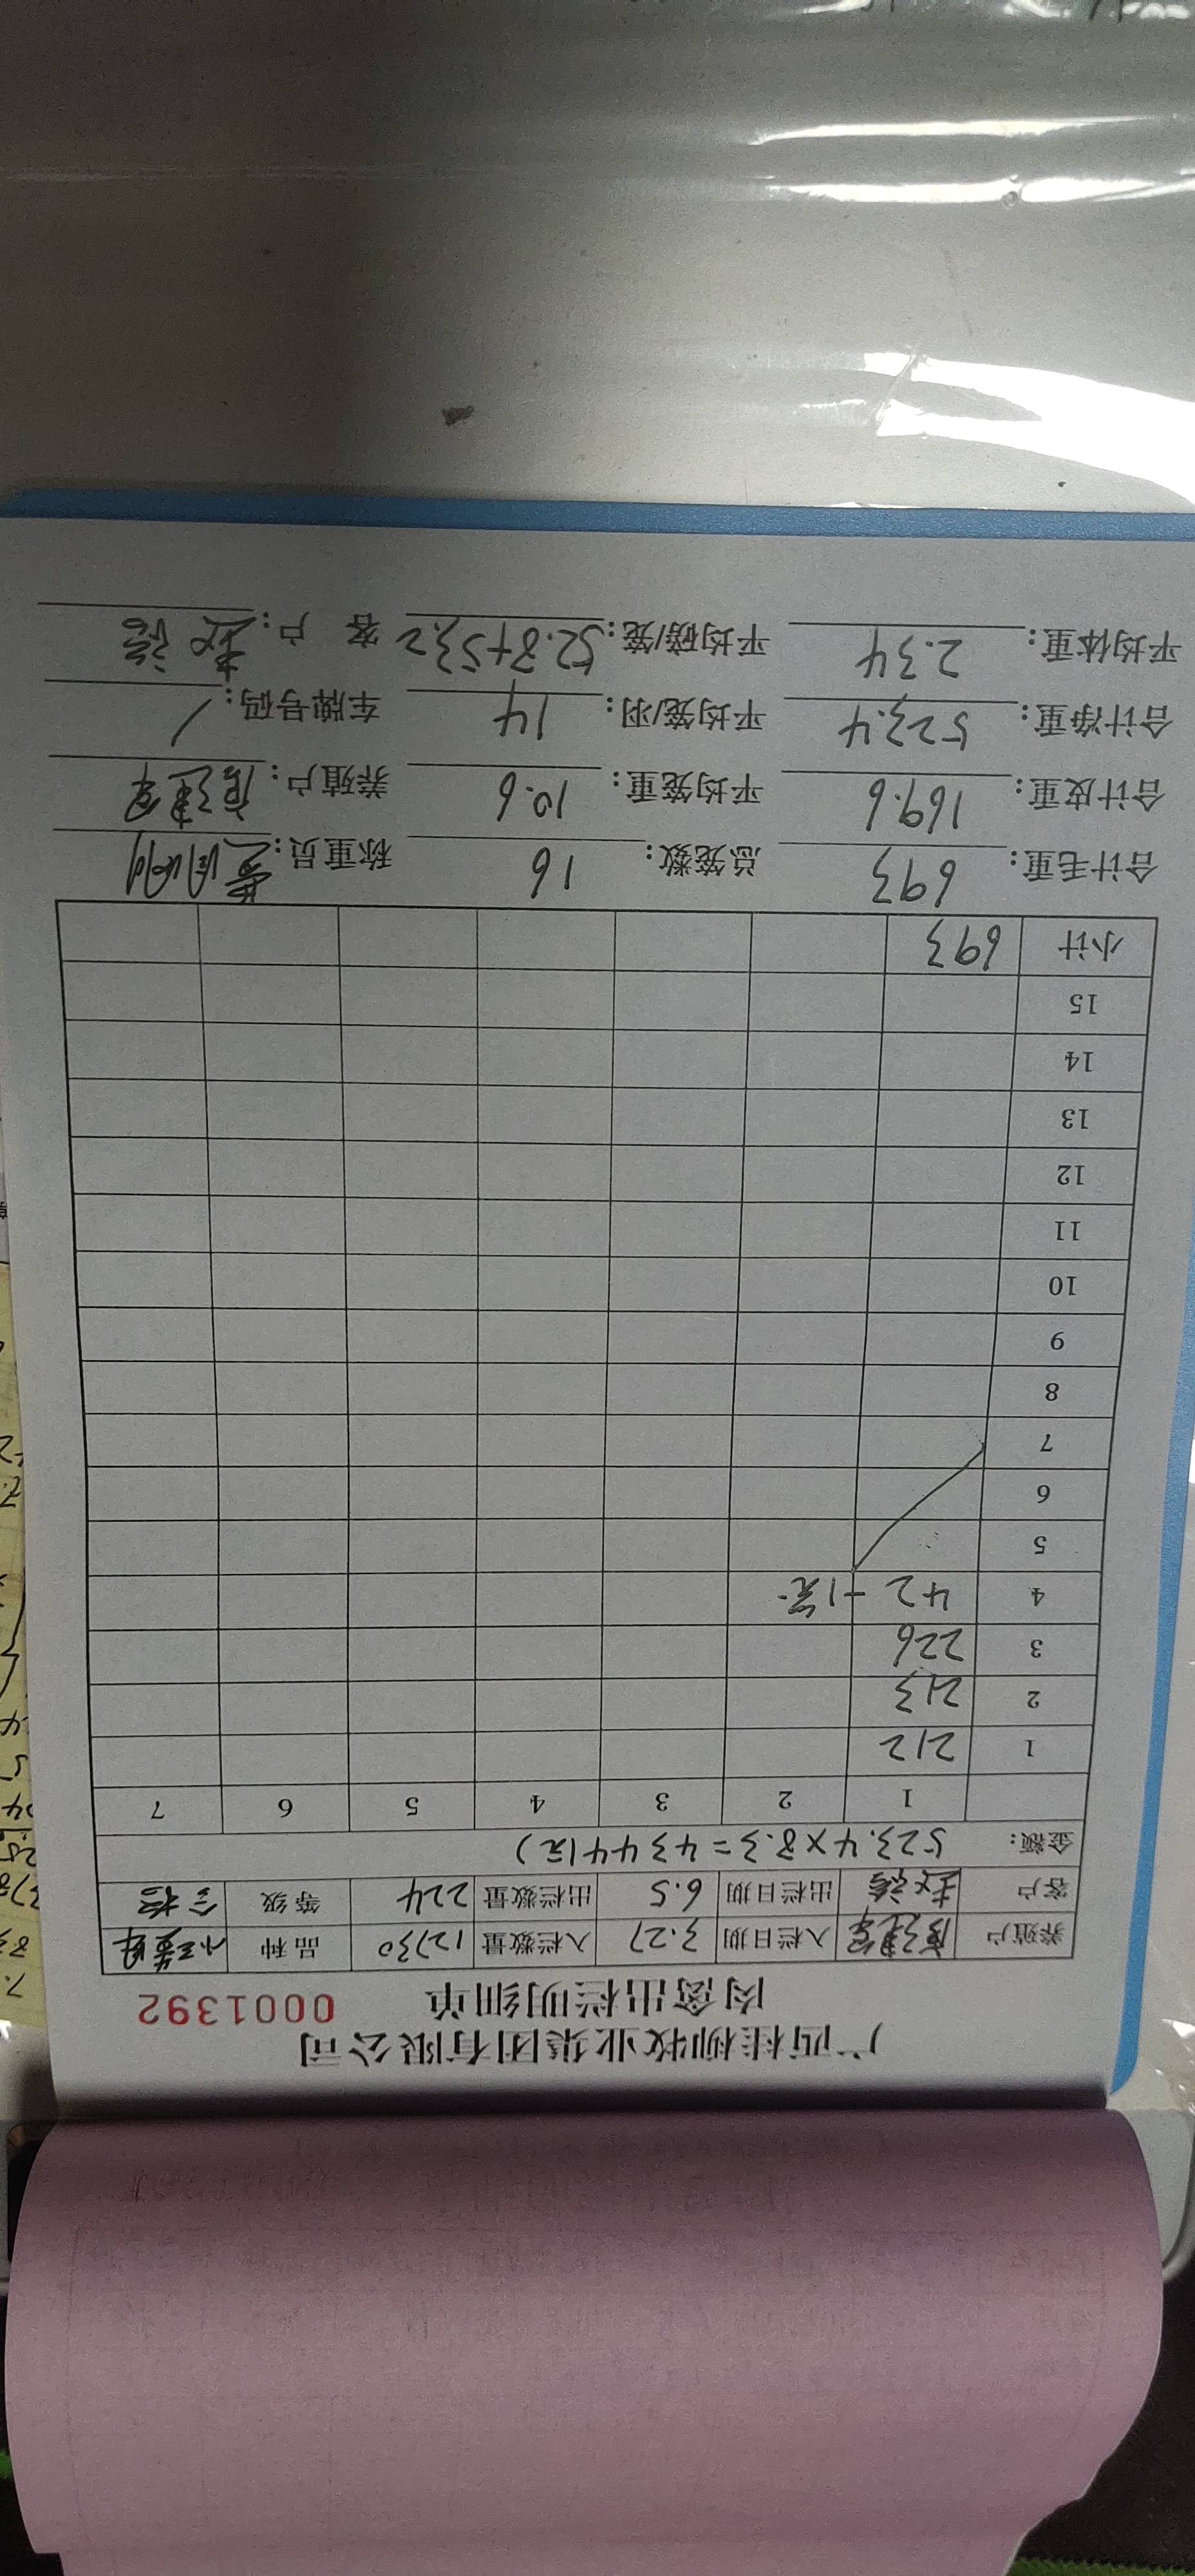 广西桂柳牧业集团有限公司
肉禽出栏明细单 0001392
养殖户 入栏日期 3.27 入栏数量 12730 品种
客户 赵谱 出栏日期 6.5 出栏数量 224 等级 合格
金额: 523.4×8.3=4344(元)
1 2 3 4 5 6 7
1 212
2 213
3 226
4 42 -1笼.
5
6
7
8
9
10
11
12
13
14
15
小计 693
合计毛重: 693 总笼数: 16 称重员:
合计皮重: 169.6 平均笼重: 10.6 养殖户:
合计净重: 523.4 平均笼/羽: 14 车牌号码: /
平均体重: 2.34 平均磅/笼: 52.8+53.2 客 户: 赵谱